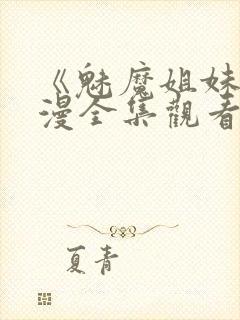 《魅魔姐妹
漫全集觀看
夏青